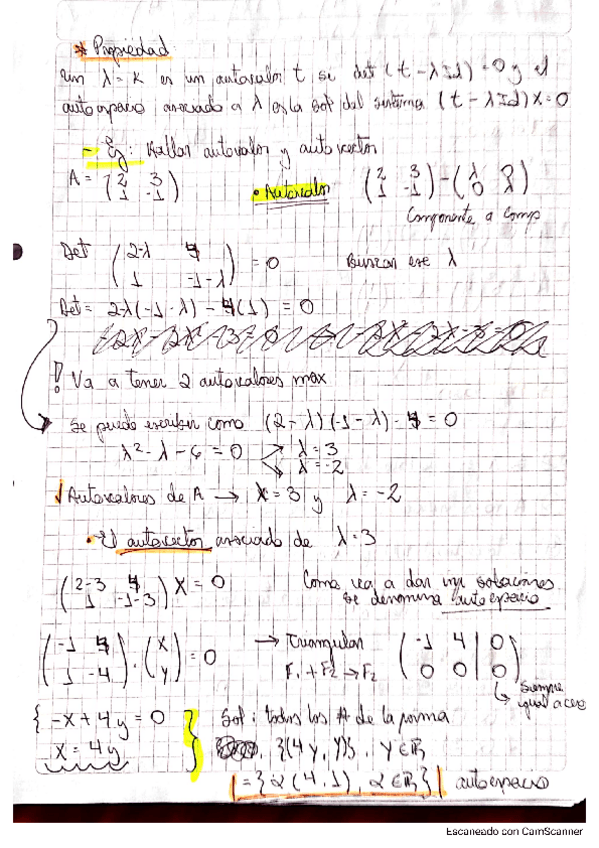 * Propiedad
Un λ = K es un autovalor t si det (t - λId) = 0 y el
autoespacio asociado a λ es la sol del sistema (t - λId)X = 0
- Ej: Hallar autovalor y autovector
A = (2 3
1 -1)
• Autovalor (2 3
1 -1) - (λ 0
0 λ)
Componente a comp
Det (2-λ 4
1 -1-λ) = 0 Buscar ese λ
Det = 2-λ(-1-λ) - 4(1) = 0
! Va a tener 2 autovalores max
Se puede escribir como (2-λ)(-1-λ) - 4 = 0
λ² - λ - 6 = 0 λ = 3
λ = -2
Autovalores de A → λ = 3 y λ = -2
• El autovector asociado de λ = 3
(2-3 4
1 -1-3) X = 0 Como va a dar inf soluciones
se denomina autoespacio
(-1 4
1 -4) · (x
y) = 0 → Triangular (-1 4 | 0
0 0 | 0)
F₁ + F₂ → F₂
↳ Siempre
igual a cero
{ -x + 4y = 0 } Sol: todos los # de la forma
x = 4y {(4y, y)}, y ∈ ℝ
= {α(4, 1), α ∈ ℝ} autoespacio
Escaneado con CamScanner